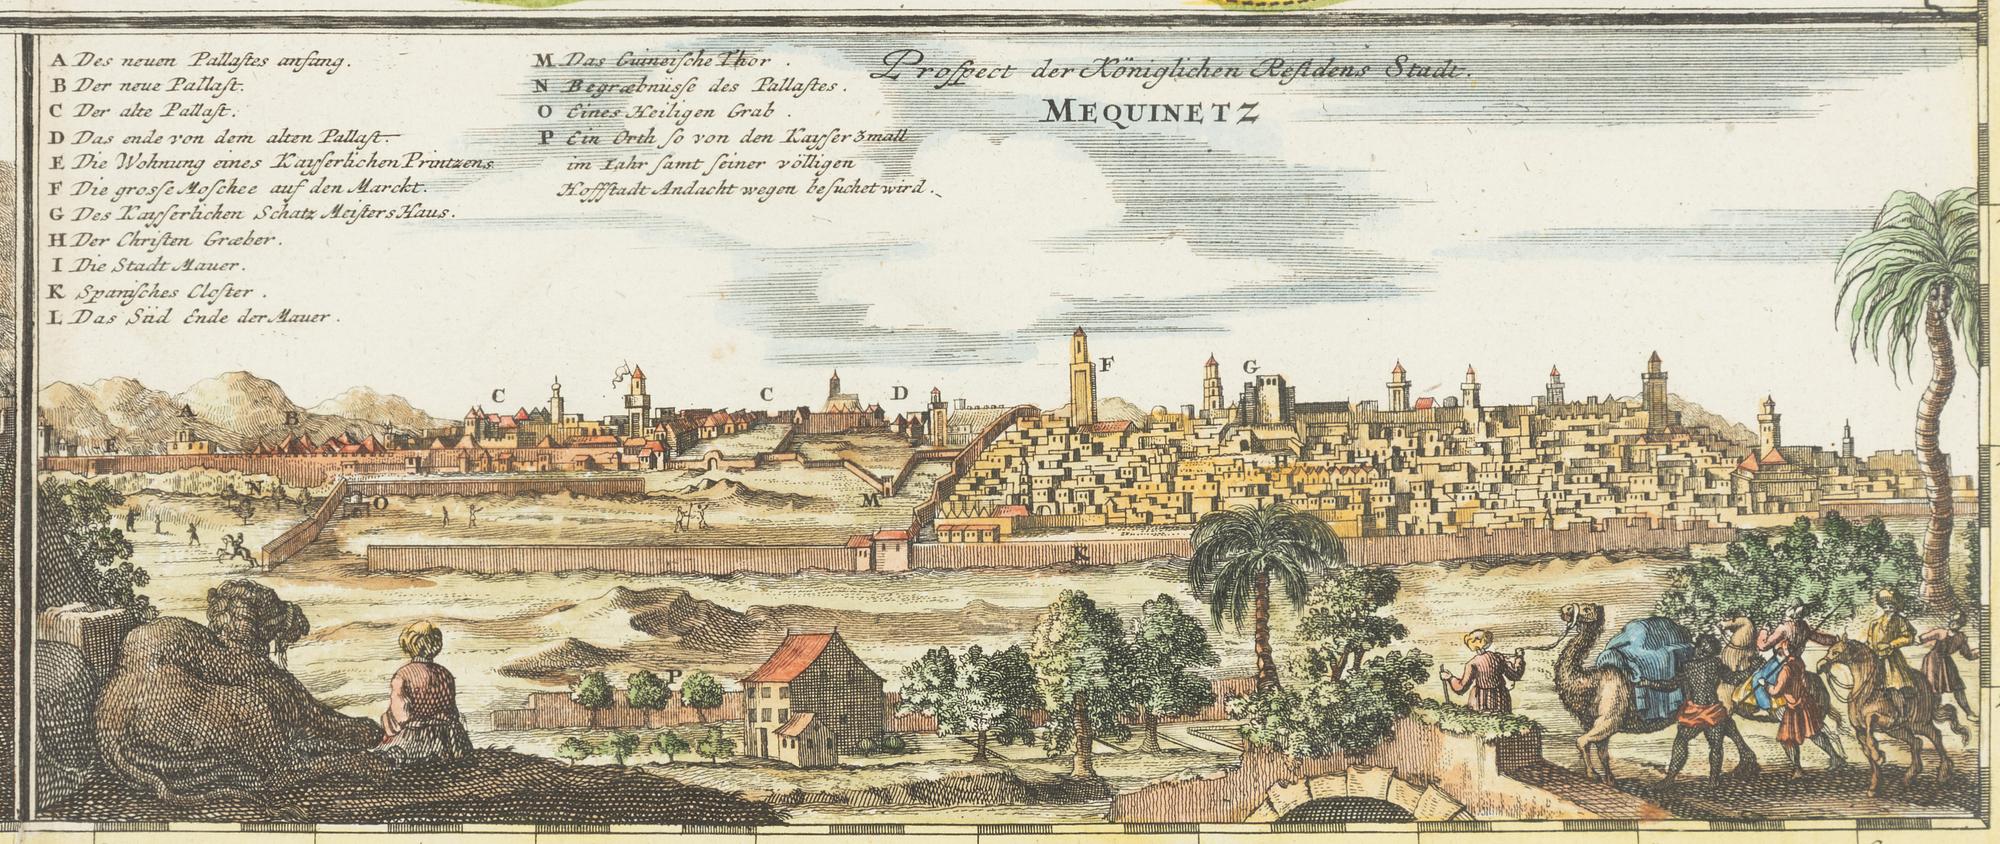 A Des neuen Pallastes anfang.
B Der neue Pallast.
C Der alte Pallast.
D Das ende von dem alten Pallast.
E Die Wohnung eines Kayserlichen Printzens
F Die grosse Moschee auf den Marckt.
G Des Kayserlichen Schatz Meisters Haus.
H Der Christen Græber.
I Die Stadt Mauer.
K Spanisches Closter.
L Das Süd Ende der Mauer.
M Das Guineische Thor.
N Begræbnüsse des Pallastes.
O Eines Heiligen Grab.
P Ein Orth so von den Kayser 3 mall
im Iahr samt seiner völligen
Hoffstadt Andacht wegen besuchet wird.
Prospect der Königlichen Residens Stadt.
MEQUINETZ
F
G
C
C
D
A
B
E
N
O
M
K
P